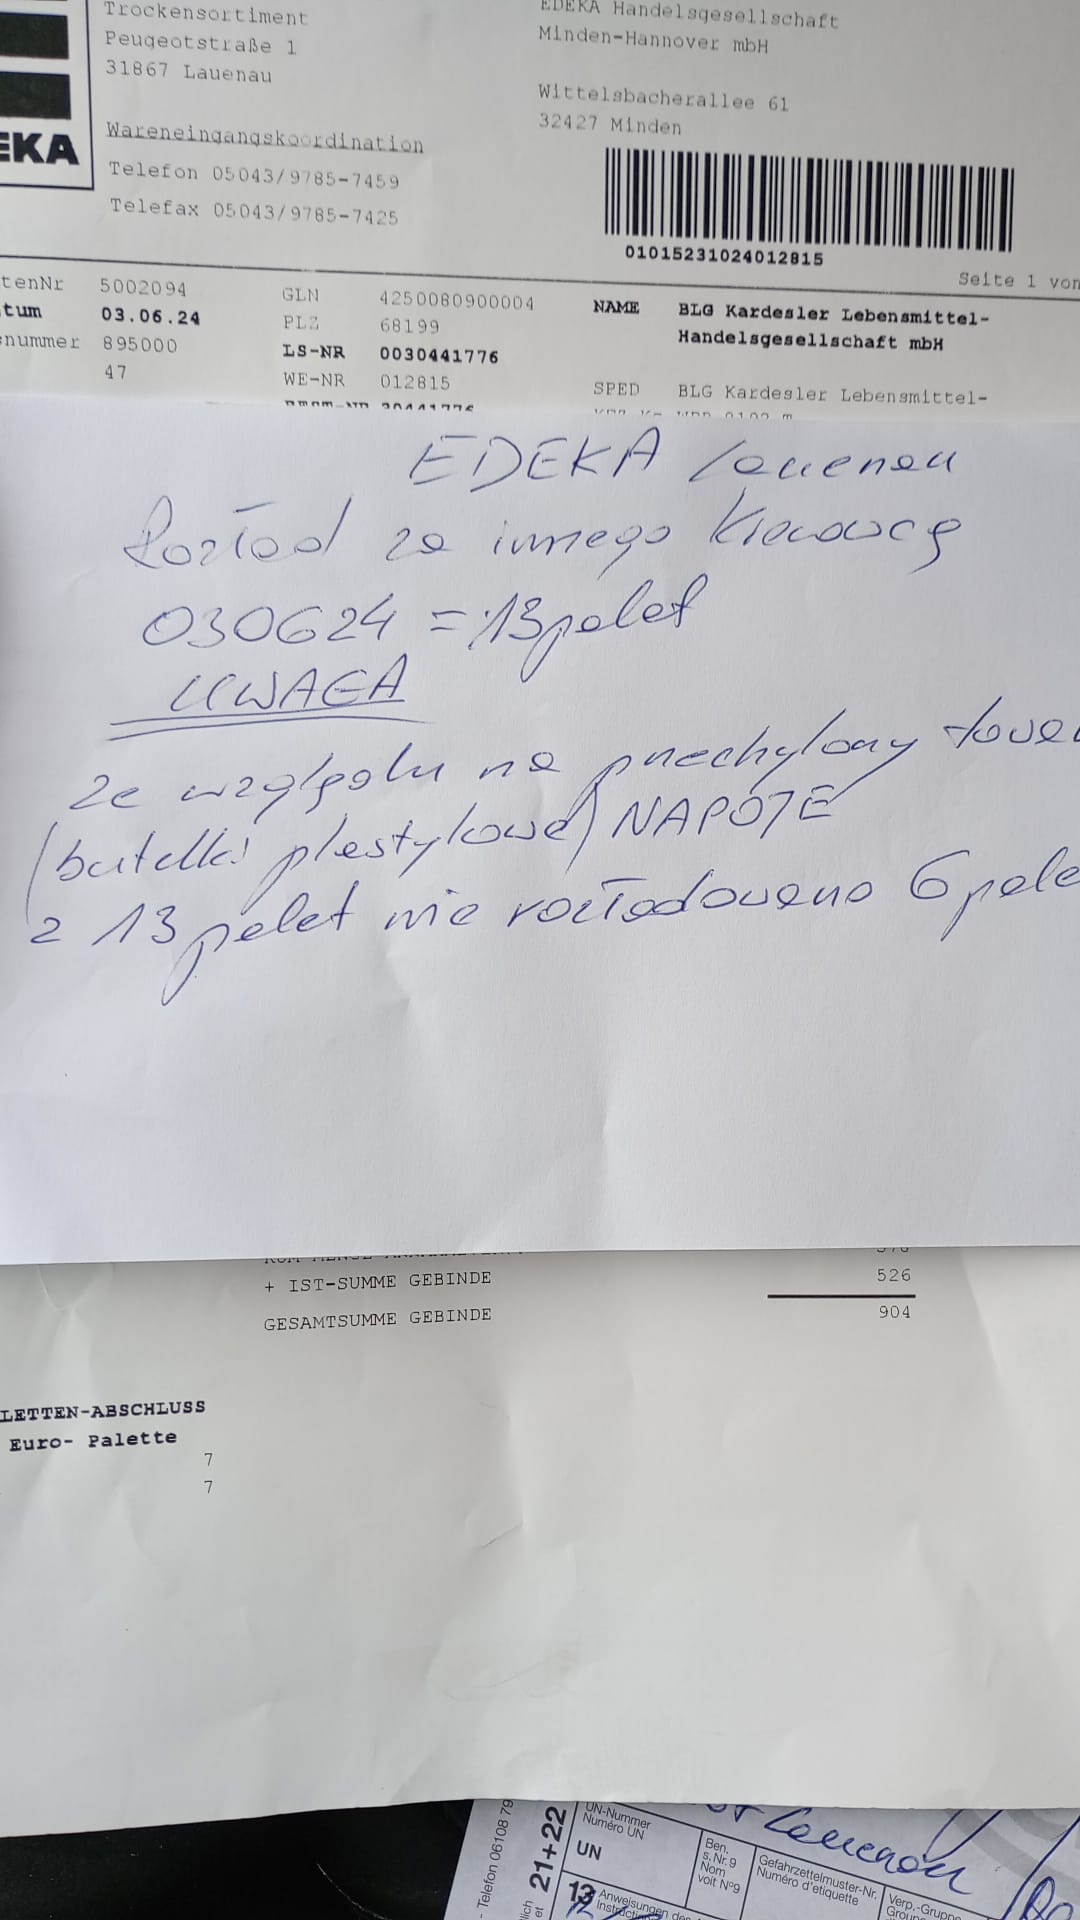 Trockensortiment
Peugeotstraße 1
31867 Lauenau
Wareneingangskoordination
Telefon 05043/9785-7459
Telefax 05043/9785-7425
EKA
EDEKA Handelsgesellschaft
Minden-Hannover mbH
Wittelsbacherallee 61
32427 Minden
01015231024012815
Seite 1 von
tenNr 5002094
tum 03.06.24
snummer 895000
47
GLN 4250080900004
PLZ 68199
LS-NR 0030441776
WE-NR 012815
NAME BLG Kardesler Lebensmittel-
Handelsgesellschaft mbH
SPED BLG Kardesler Lebensmittel-
EDEKA Lauenau
Rozład za innego kierowcę
030624 = 13 palet
UWAGA
Ze względu na przechylony towar
(butelki plastykowe) NAPOJE
z 13 palet nie rozładowano 6 pale
+ IST-SUMME GEBINDE 526
GESAMTSUMME GEBINDE 904
LETTEN-ABSCHLUSS
Euro- Palette
7
7
Lauenau
- Telefon 06108 79
21+22
UN-Nummer
Numéro UN
UN
Ben.
s. Nr. 9
Nom
voit N°9
Gefahrzettelmuster-Nr.
Numéro d'etiquette
Verp.-Gruppe
13